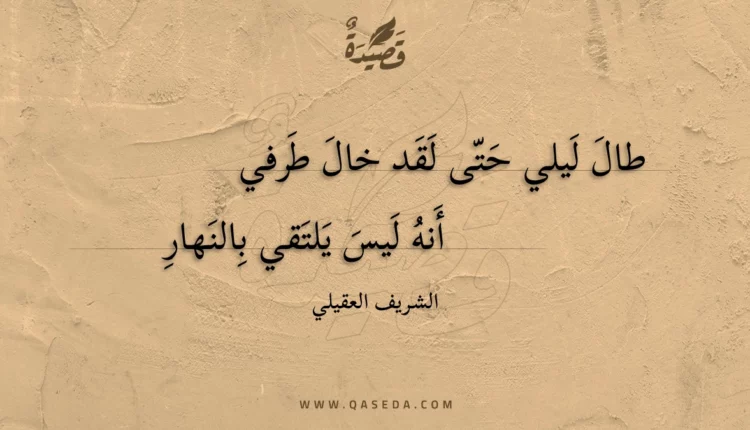 قَصِيدَةٌ
طالَ لَيلي حَتّى لَقَد خالَ طَرفي
أَنهُ لَيسَ يَلتَقي بِالنَهارِ
الشريف العقيلي
WWW.QASEDA.COM